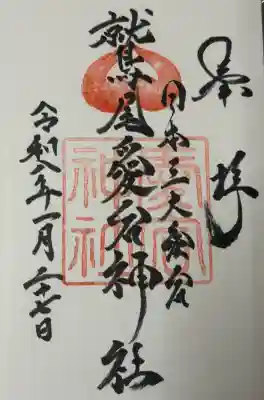 奉拝
日本三大愛宕
鷲尾愛宕神社
愛宕神社
令和 年一月二十七日